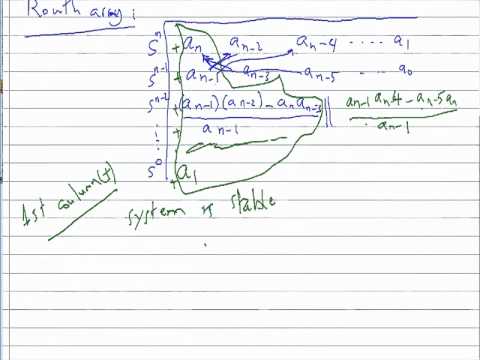 Routh array:
sⁿ + aₙ aₙ₋₂ aₙ₋₄ .... a₁
sⁿ⁻¹ + aₙ₋₁ aₙ₋₃ aₙ₋₅ ... a₀
sⁿ⁻² + (aₙ₋₁)(aₙ₋₂) - aₙ aₙ₋₃ / aₙ₋₁ || aₙ₋₁ aₙ₋₄ - aₙ₋₅ aₙ / aₙ₋₁
⋮ +
s⁰ + a₁
1st column (+)
system is stable